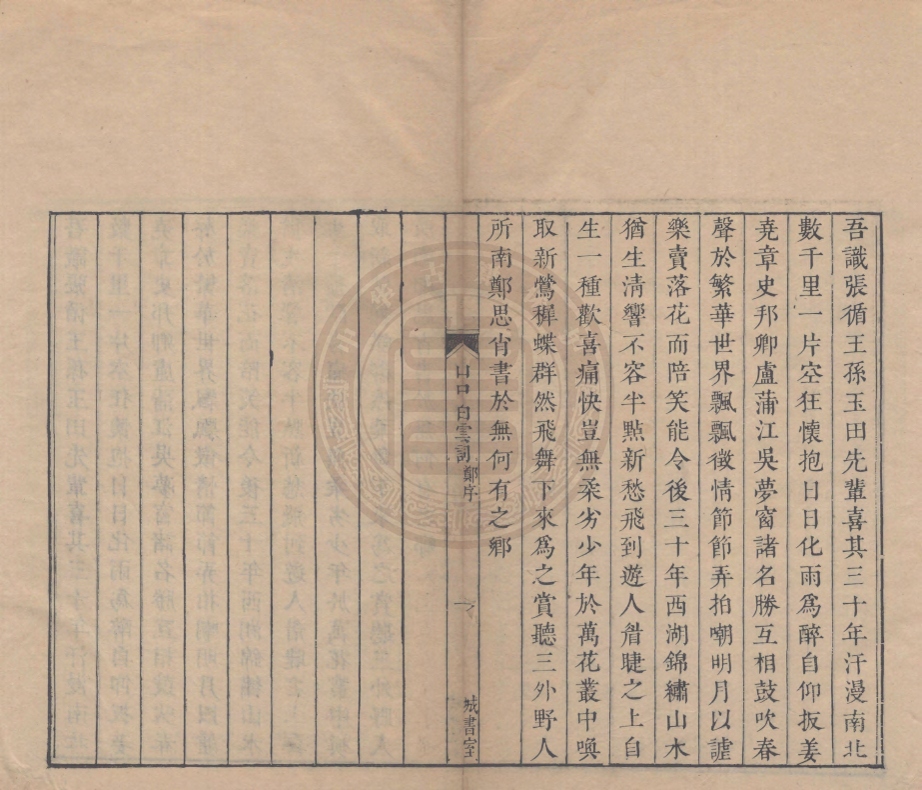 吾識張循王孫玉田先輩喜其三十年汗漫南北
數千里一片空狂懷抱日日化雨爲醉自仰扳姜
堯章史邦卿盧蒲江吳夢窗諸名勝互相鼓吹春
聲於繁華世界飄飄徵情節節弄拍嘲明月以謔
樂賣落花而陪笑能令後三十年西湖錦繡山水
猶生清響不容半點新愁飛到遊人眉睫之上自
生一種歡喜痛快豈無柔劣少年於萬花叢中喚
取新鶯穉蝶群然飛舞下來爲之賞聽三外野人
所南鄭思肖書於無何有之鄉
山中白雲詞 鄭序
一
城書室